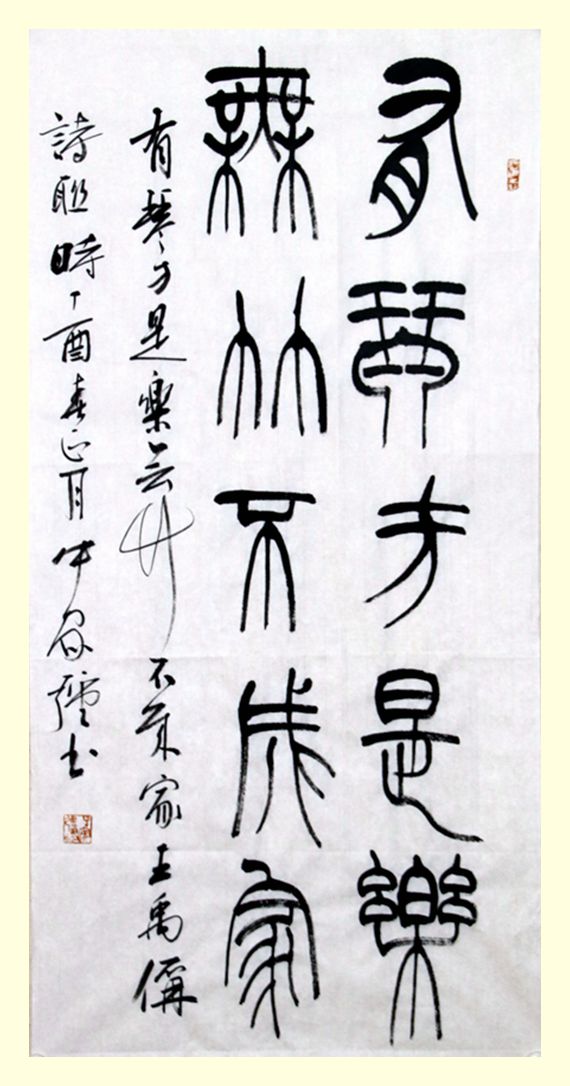 有琴方是樂
無竹不成家
有琴方是樂無竹不成家王禹偁
詩联時丁酉春正月牛家强书